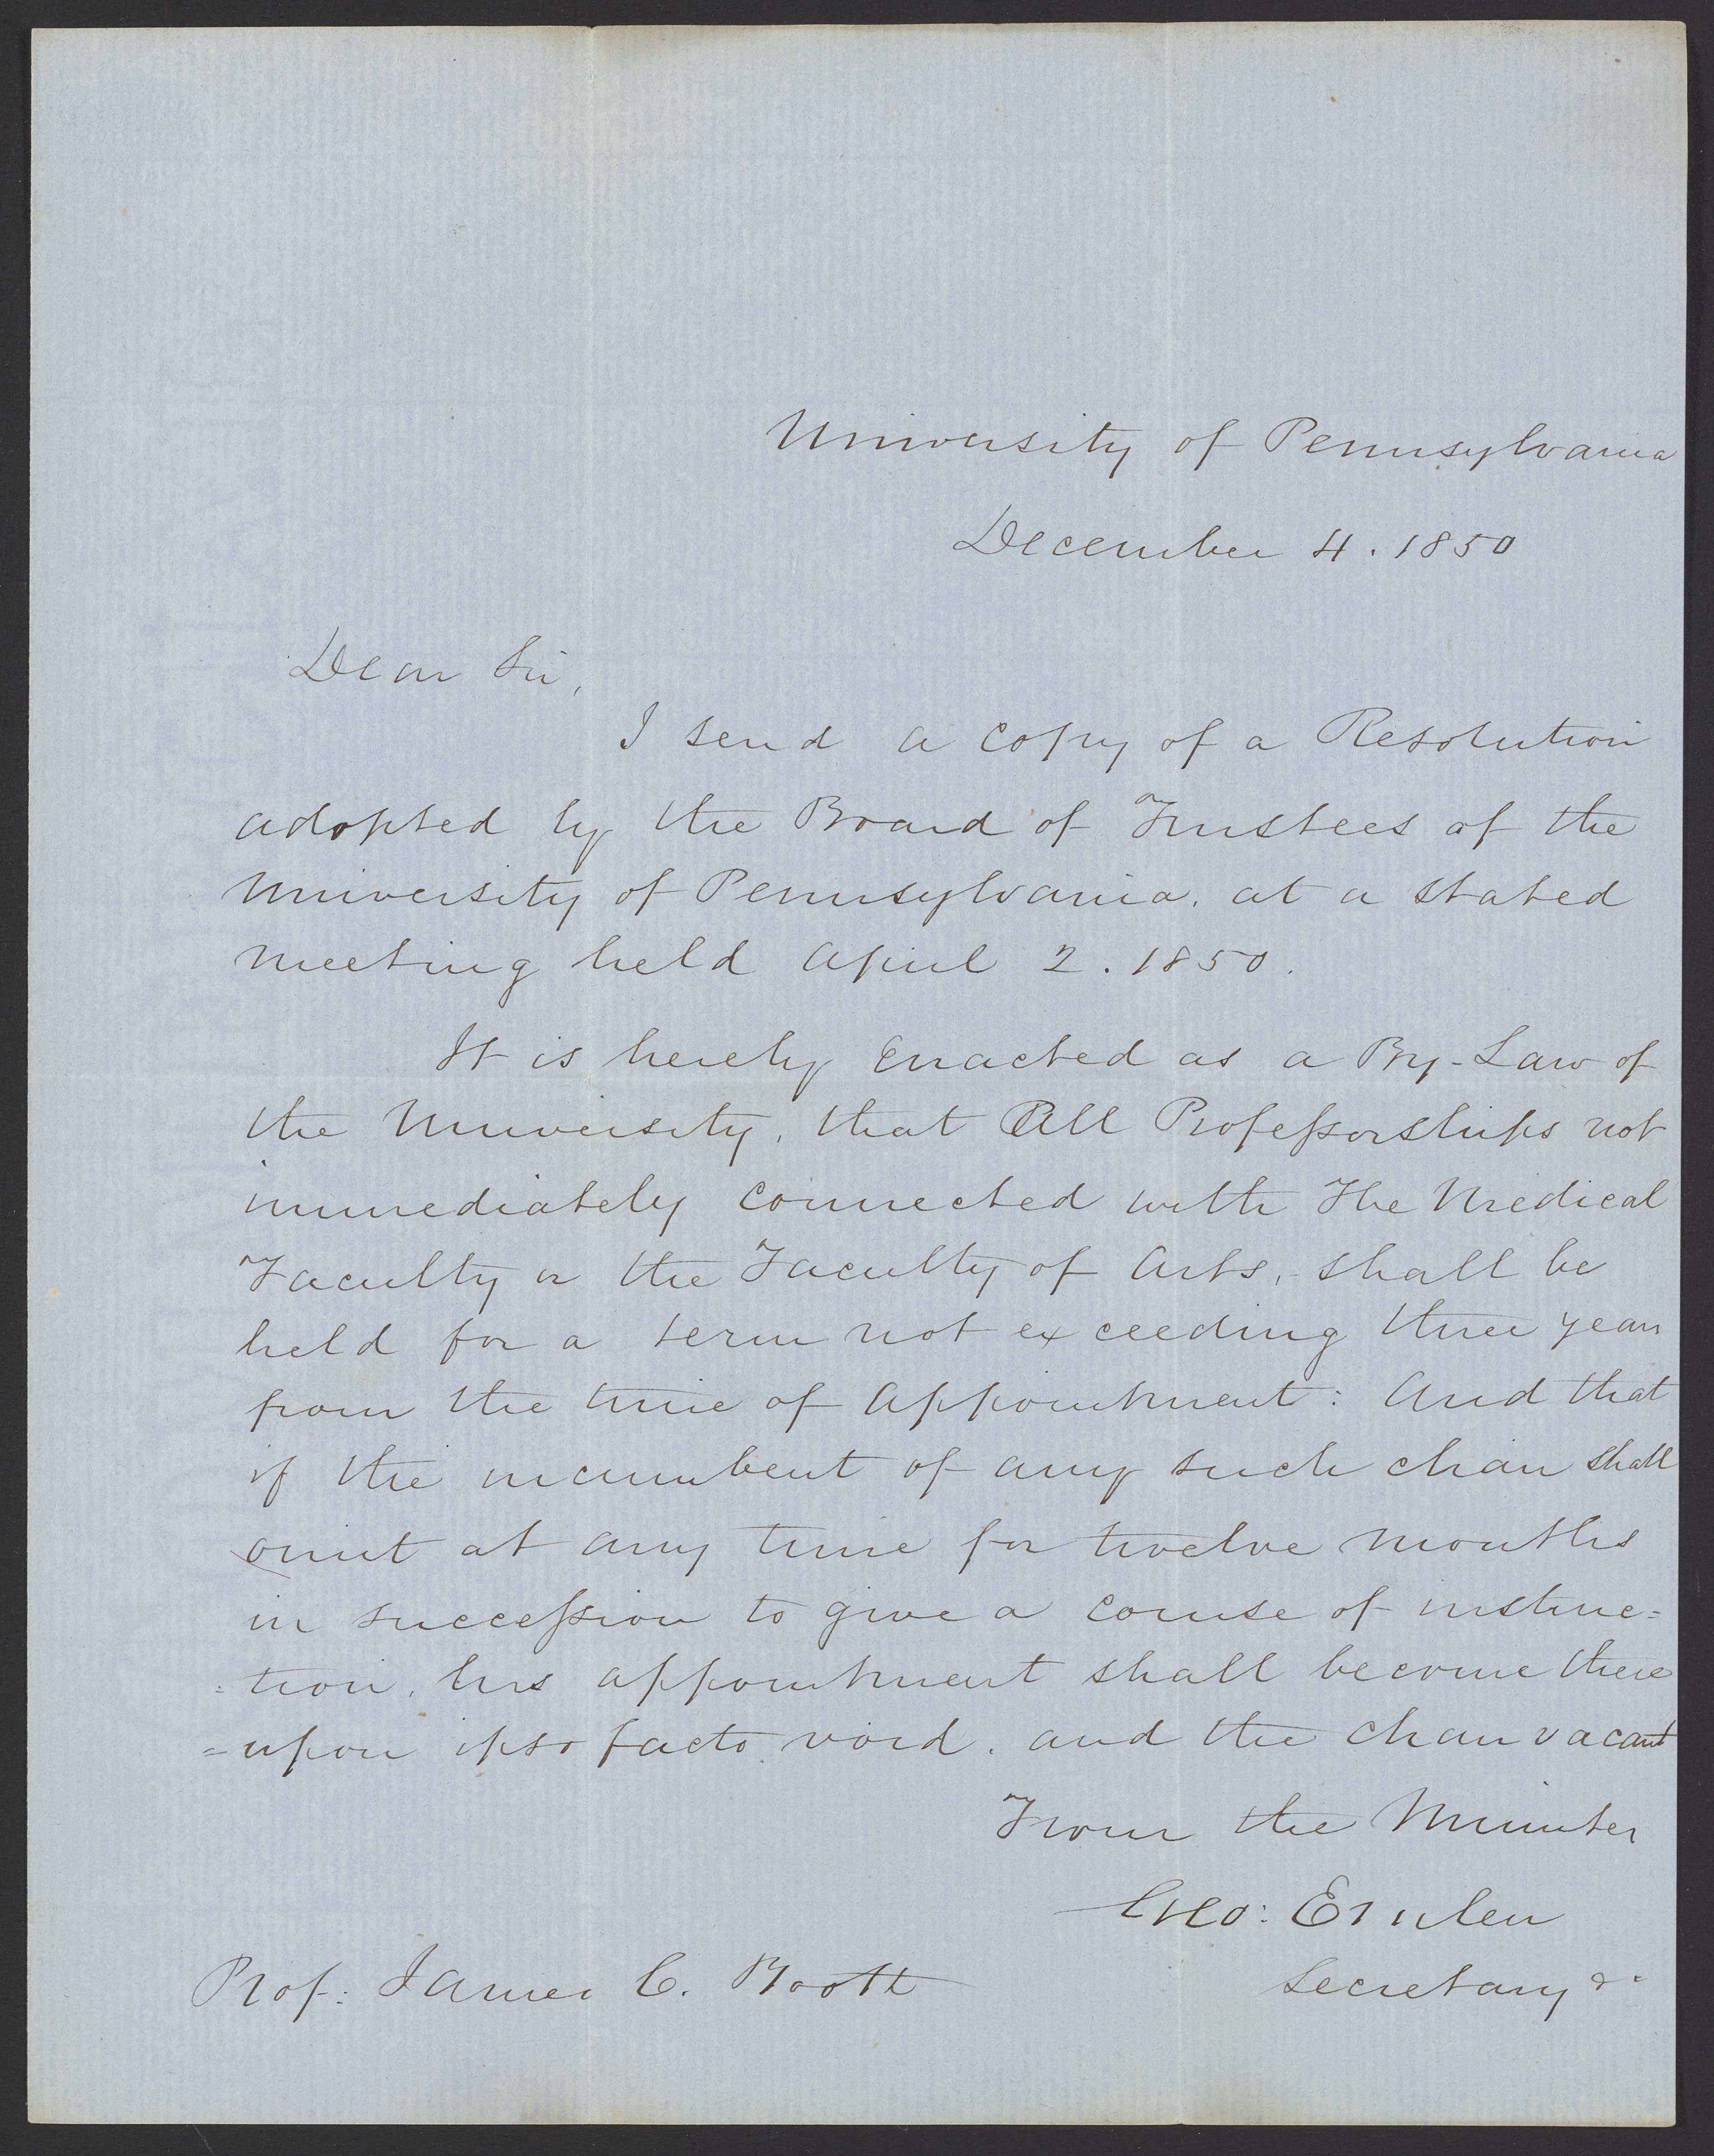 University of Pennsylvania
December 4. 1850
Dear Sir,
I send a copy of a Resolution
adopted by the Board of Trustees of the
University of Pennsylvania, at a stated
meeting held April 2. 1850.
It is hereby Enacted as a By-Law of
the University, that All Professorships not
immediately connected with The Medical
Faculty or the Faculty of Arts, shall be
held for a term not exceeding three years
from the time of appointment: And that
if the incumbent of any such chair shall
omit at any time for twelve months
in succession to give a course of instruc=
=tion, his appointment shall become there
=upon ipso facto void, and the chair vacant
From the Minutes
Geo: Emlen
Secretary &c
Prof: James C. Booth